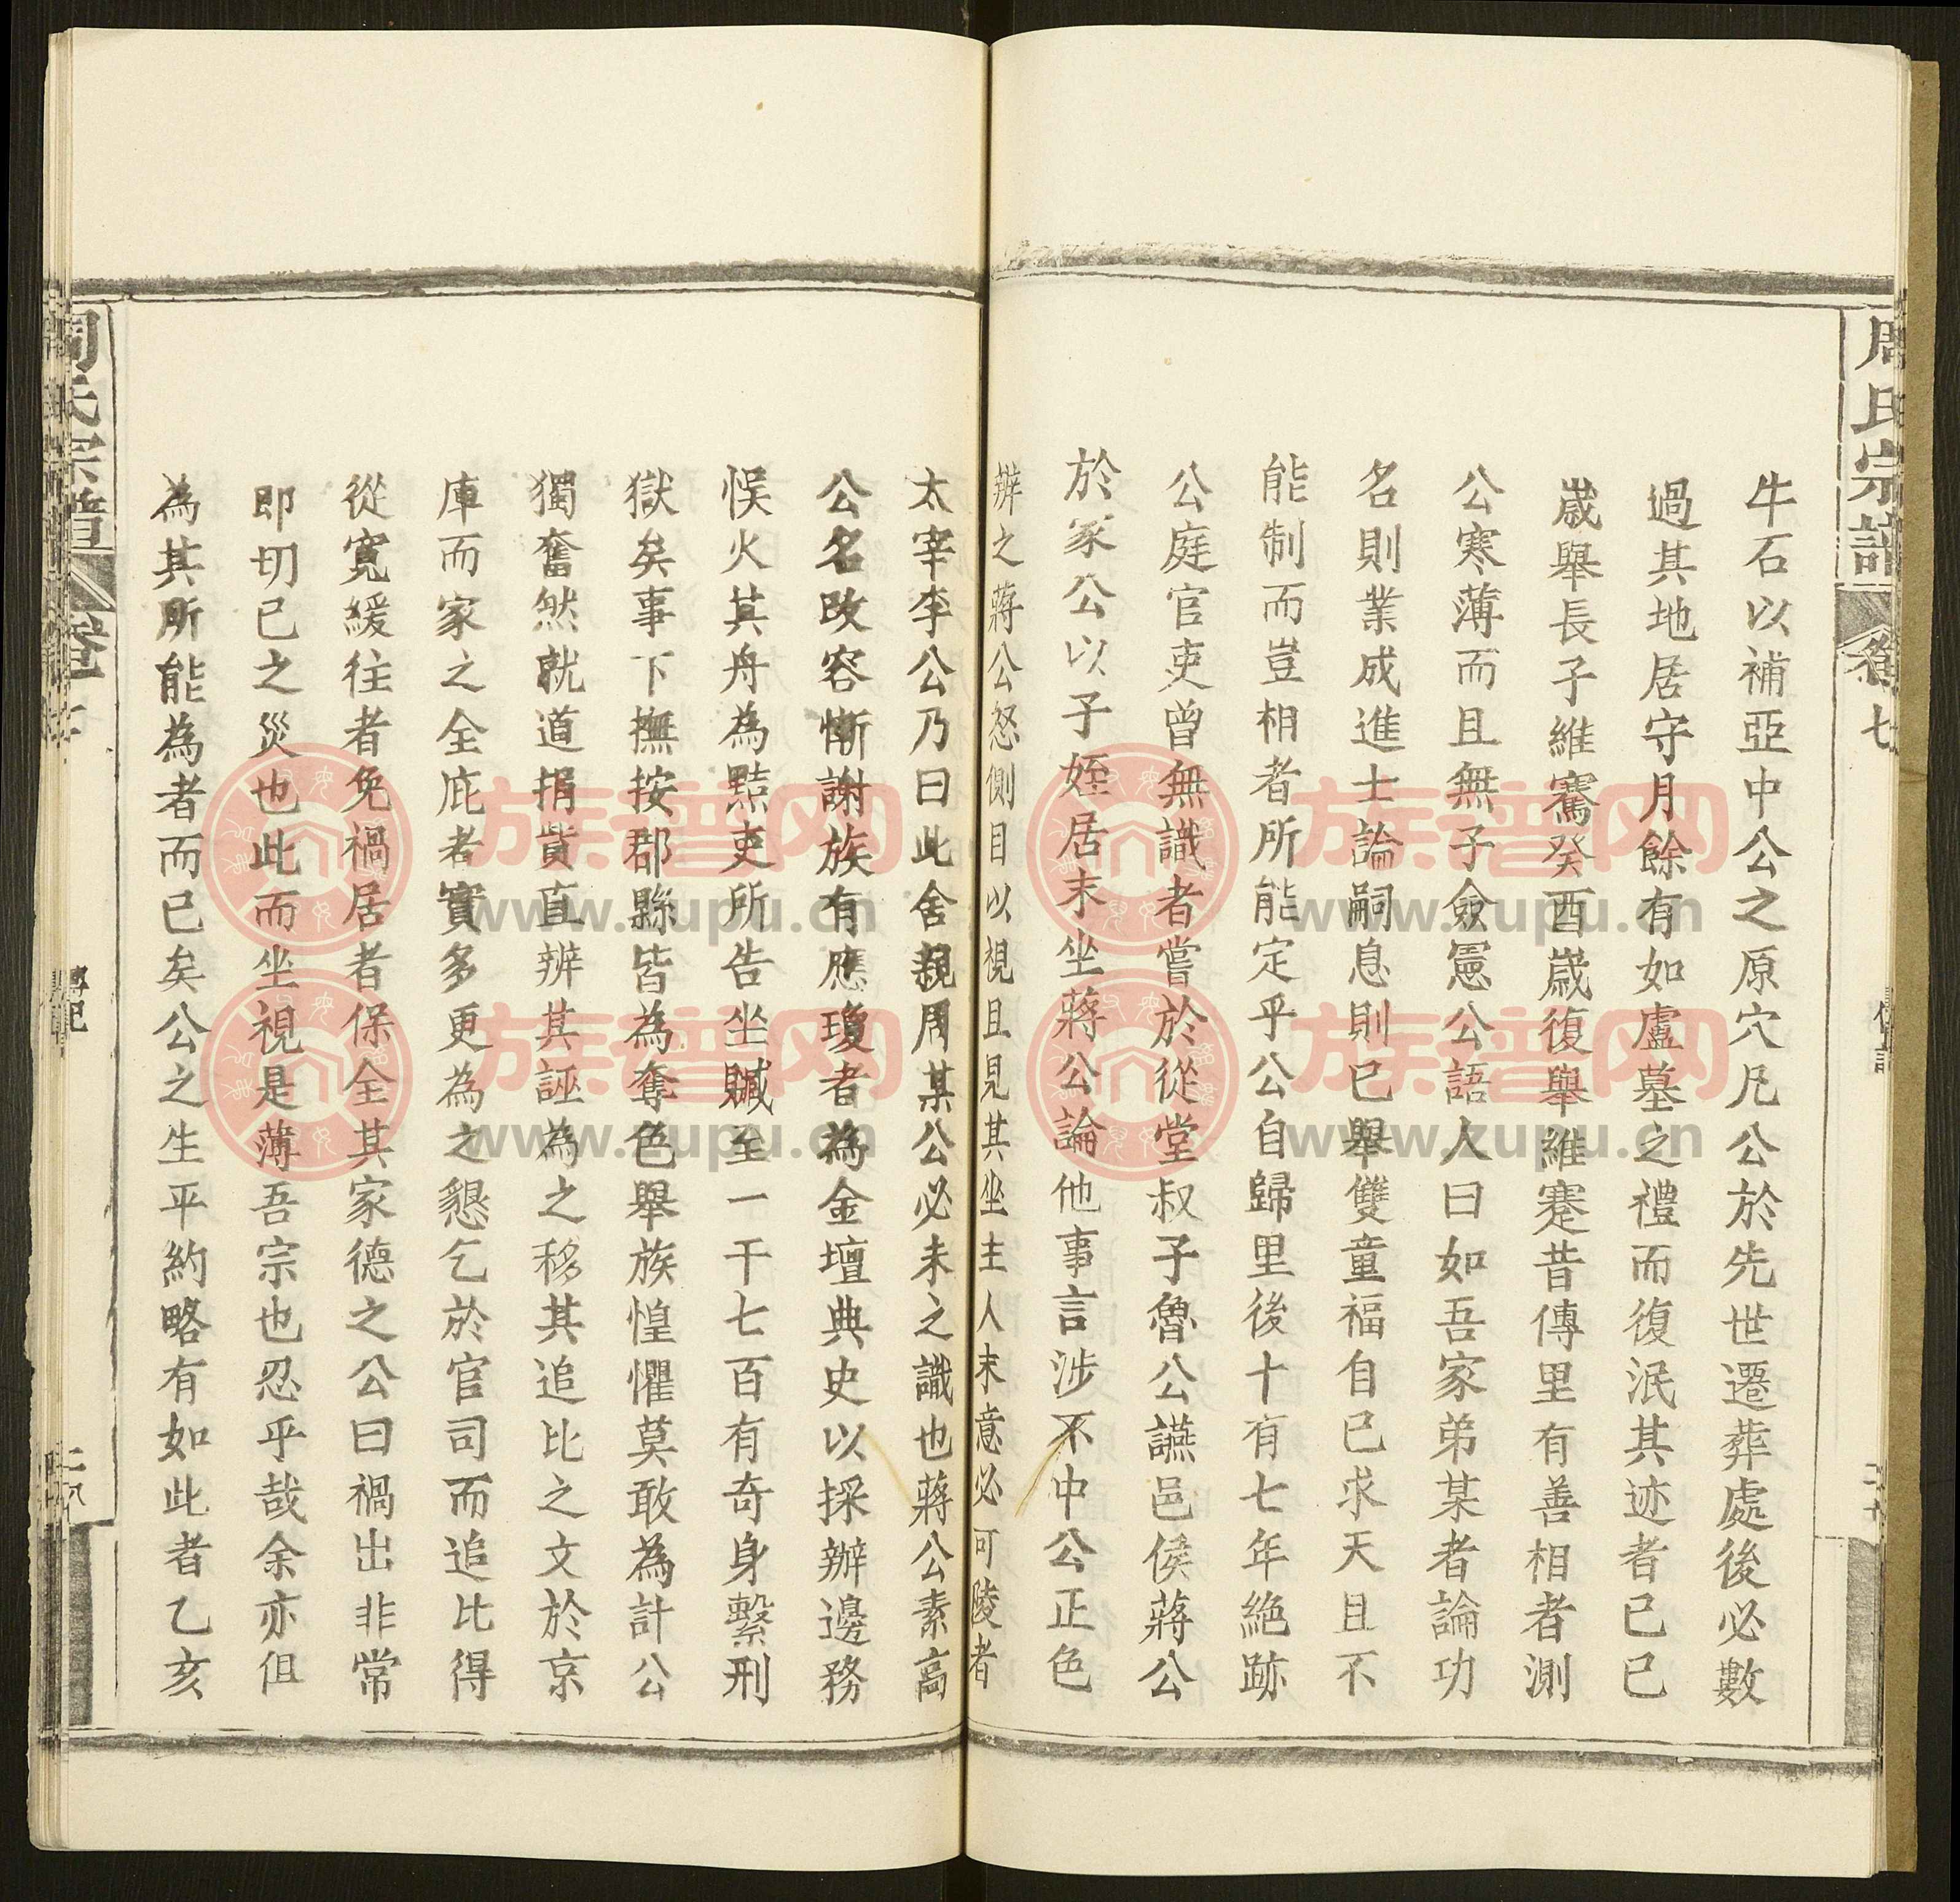 周氏宗譜 卷七 傳記
牛石以補亞中公之原穴凡公於先世遷葬處後必數
過其地居守月餘有如盧墓之禮而復泯其迹者己巳
歲舉長子維騫癸酉歲復舉維蹇昔傳里有善相者測
公寒薄而且無子僉憲公語人曰如吾家弟某者論功
名則業成進士論嗣息則已舉雙童福自已求天且不
能制而豈相者所能定乎公自歸里後十有七年絶跡
公庭官吏曾無識者嘗於從堂叔子魯公讌邑侯蔣公
於家公以子姪居末坐蔣公論他事言涉不中公正色
辨之蔣公怒側目以視且見其坐主人末意必可陵者
太宰李公乃曰此舍親周某公必未之識也蔣公素高
公名改容慚謝族有應瓊者為金壇典史以採辦邊務
悮火其舟為黠吏所告坐贓至一千七百有奇身繫刑
獄矣事下撫按郡縣皆為奪色舉族惶懼莫敢為計公
獨奮然就道捐貲直辨其誣為之移其追比之文於京
庫而家之全庇者實多更為之懇乞於官司而追比得
從寬緩往者免禍居者保全其家德之公曰禍出非常
即切已之災也此而坐視是薄吾宗也忍乎哉余亦但
為其所能為者而已矣公之生平約略有如此者乙亥
周氏宗譜 卷七 傳記
族譜网
www.zupu.cn
族譜网
www.zupu.cn
族譜网
www.zupu.cn
族譜网
www.zupu.cn